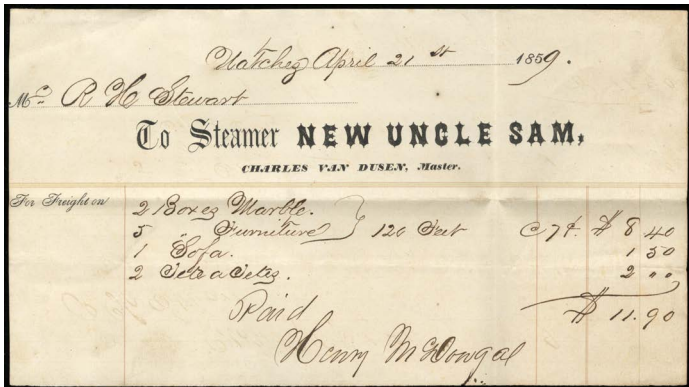 Natchez April 21st 1859.
Mr. R H Stewart
To Steamer NEW UNCLE SAM,
CHARLES VAN DUSEN, Master.
For Freight on 2 Boxes Marble.
5 " Furniture } 120 Feet @ 7¢. $ 8 40
1 Sofa. 1 50
2 Tete a Tetes. 2 " "
Paid $ 11.90
Henry McDougal